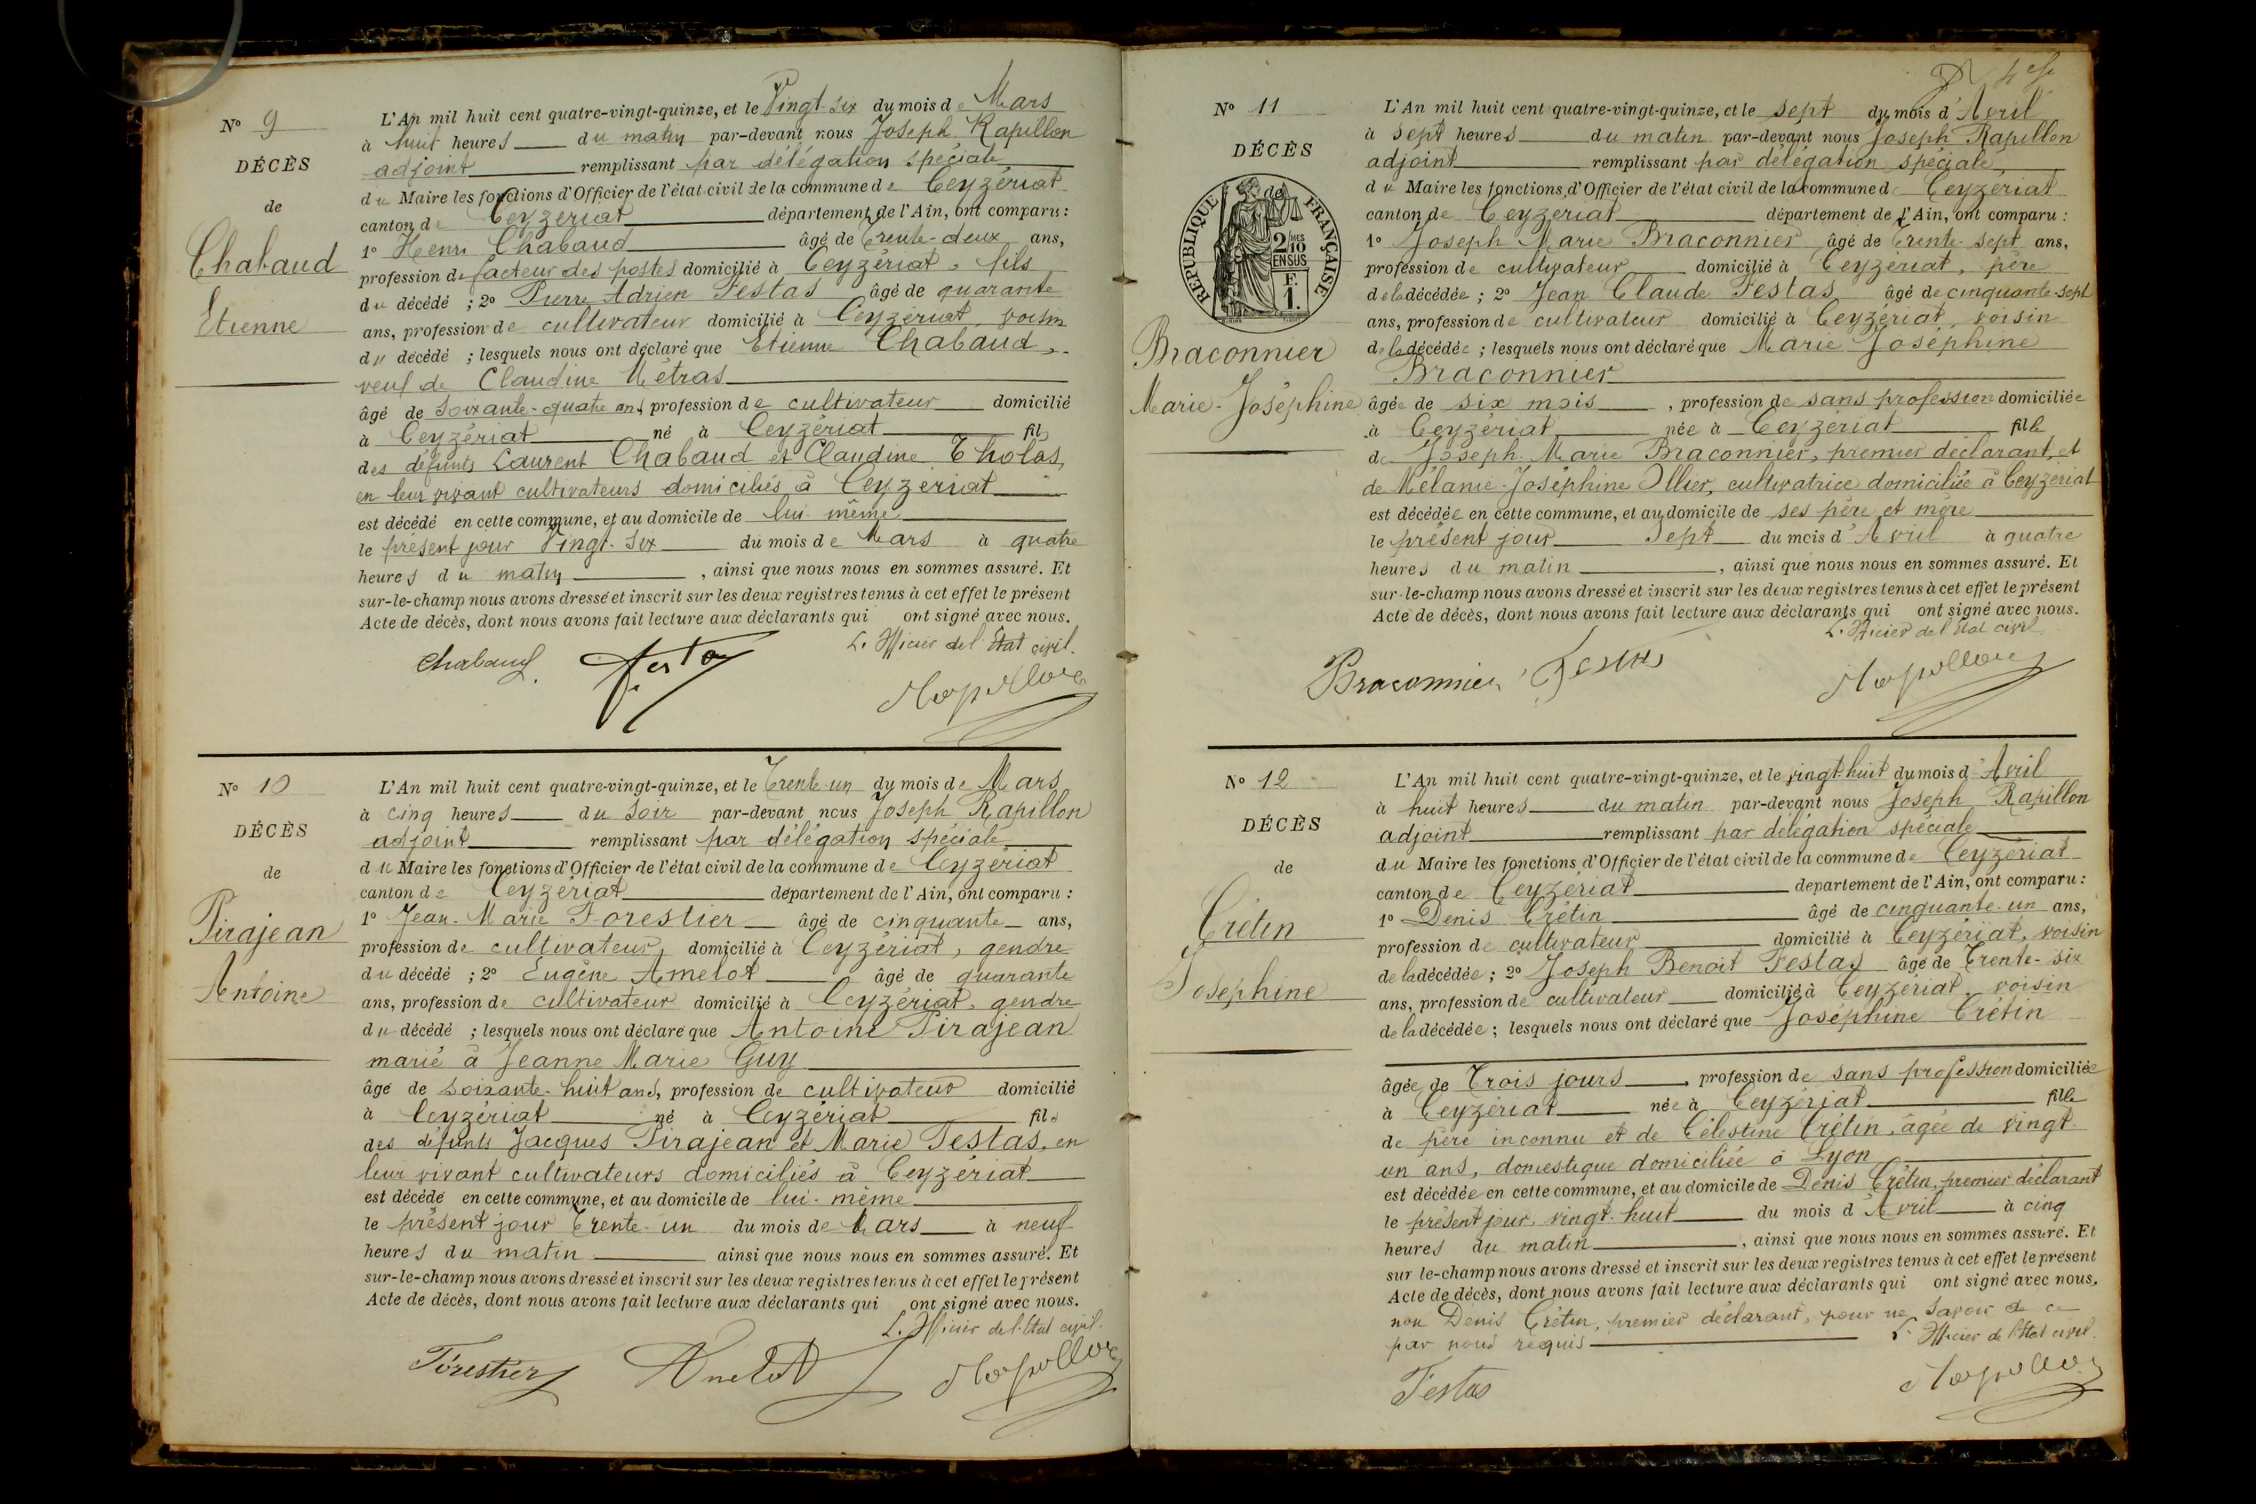 N° 9
DÉCÈS
de
Chabaud
Etienne
L'An mil huit cent quatre-vingt-quinze, et le Vingt-six du mois de Mars
à huit heures du matin par-devant nous Joseph Rapillon
adjoint remplissant par délégation spéciale
du Maire les fonctions d'Officier de l'état civil de la commune de Ceyzériat
canton de Ceyzériat département de l'Ain, ont comparu :
1° Henri Chabaud âgé de Trente-deux ans,
profession de facteur des postes domicilié à Ceyzériat, fils
du décédé ; 2° Pierre Adrien Festas âgé de quarante
ans, profession de cultivateur domicilié à Ceyzériat, voisin
du décédé ; lesquels nous ont déclaré que Etienne Chabaud,
veuf de Claudine Métras
âgé de soixante-quatre ans, profession de cultivateur domicilié
à Ceyzériat né à Ceyzériat fils
des défunts Laurent Chabaud et Claudine Tholas,
en leur vivant cultivateurs domiciliés à Ceyzériat
est décédé en cette commune, et au domicile de lui-même
le présent jour Vingt-six du mois de Mars à quatre
heures du matin, ainsi que nous nous en sommes assuré. Et
sur-le-champ nous avons dressé et inscrit sur les deux registres tenus à cet effet le présent
Acte de décès, dont nous avons fait lecture aux déclarants qui ont signé avec nous.
L'Officier de l'Etat civil.
Chabaud Festas Rapillon
N° 10
DÉCÈS
de
Pirajean
Antoine
L'An mil huit cent quatre-vingt-quinze, et le Trente-un du mois de Mars
à cinq heures du soir par-devant nous Joseph Rapillon
adjoint remplissant par délégation spéciale
du Maire les fonctions d'Officier de l'état civil de la commune de Ceyzériat
canton de Ceyzériat département de l'Ain, ont comparu :
1° Jean-Marie Forestier âgé de cinquante ans,
profession de cultivateur domicilié à Ceyzériat, gendre
du décédé ; 2° Eugène Amelot âgé de quarante
ans, profession de cultivateur domicilié à Ceyzériat, gendre
du décédé ; lesquels nous ont déclaré que Antoine Pirajean
marié à Jeanne Marie Guy
âgé de soixante-huit ans, profession de cultivateur domicilié
à Ceyzériat né à Ceyzériat fils
des défunts Jacques Pirajean et Marie Festas, en
leur vivant cultivateurs domiciliés à Ceyzériat
est décédé en cette commune, et au domicile de lui-même
le présent jour Trente-un du mois de Mars à neuf
heures du matin ainsi que nous nous en sommes assuré. Et
sur-le-champ nous avons dressé et inscrit sur les deux registres tenus à cet effet le présent
Acte de décès, dont nous avons fait lecture aux déclarants qui ont signé avec nous.
L'Officier de l'Etat civil.
Forestier Amelot Rapillon
N° 11
DÉCÈS
de
RÉPUBLIQUE FRANÇAISE
2/10MES
EN SUS
F.
1.
Braconnier
Marie-Joséphine
L'An mil huit cent quatre-vingt-quinze, et le sept du mois d'Avril
à sept heures du matin par-devant nous Joseph Rapillon
adjoint remplissant par délégation spéciale,
du Maire les fonctions d'Officier de l'état civil de la commune de Ceyzériat
canton de Ceyzériat département de l'Ain, ont comparu :
1° Joseph Marie Braconnier âgé de Trente-sept ans,
profession de cultivateur domicilié à Ceyzériat, père
de la décédée ; 2° Jean Claude Festas âgé de cinquante-sept
ans, profession de cultivateur domicilié à Ceyzériat, voisin
de la décédée ; lesquels nous ont déclaré que Marie Joséphine
Braconnier
âgée de six mois, profession de sans profession domiciliée
à Ceyzériat née à Ceyzériat fille
de Joseph Marie Braconnier, premier déclarant, et
de Mélanie-Joséphine Ollier, cultivatrice domiciliée à Ceyzériat
est décédée en cette commune, et au domicile de ses père et mère
le présent jour Sept du mois d'Avril à quatre
heures du matin, ainsi que nous nous en sommes assuré. Et
sur-le-champ nous avons dressé et inscrit sur les deux registres tenus à cet effet le présent
Acte de décès, dont nous avons fait lecture aux déclarants qui ont signé avec nous.
L'Officier de l'Etat civil
Braconnier Festas Rapillon
N° 12
DÉCÈS
de
Crétin
Joséphine
L'An mil huit cent quatre-vingt-quinze, et le vingt-huit du mois d'Avril
à huit heures du matin par-devant nous Joseph Rapillon
adjoint remplissant par délégation spéciale
du Maire les fonctions d'Officier de l'état civil de la commune de Ceyzériat
canton de Ceyzériat département de l'Ain, ont comparu :
1° Denis Crétin âgé de cinquante-un ans,
profession de cultivateur domicilié à Ceyzériat, voisin
de la décédée ; 2° Joseph Benoit Festas âgé de Trente-six
ans, profession de cultivateur domicilié à Ceyzériat, voisin
de la décédée ; lesquels nous ont déclaré que Joséphine Crétin
âgée de Trois jours, profession de sans profession domiciliée
à Ceyzériat née à Ceyzériat fille
de père inconnu et de Célestine Crétin, âgée de vingt-
un ans, domestique domiciliée à Lyon
est décédée en cette commune, et au domicile de Denis Crétin, premier déclarant
le présent jour vingt-huit du mois d'Avril à cinq
heures du matin, ainsi que nous nous en sommes assuré. Et
sur le-champ nous avons dressé et inscrit sur les deux registres tenus à cet effet le présent
Acte de décès, dont nous avons fait lecture aux déclarants qui ont signé avec nous,
non Denis Crétin, premier déclarant, pour ne savoir de ce
par nous requis L'Officier de l'Etat civil.
Festas Rapillon